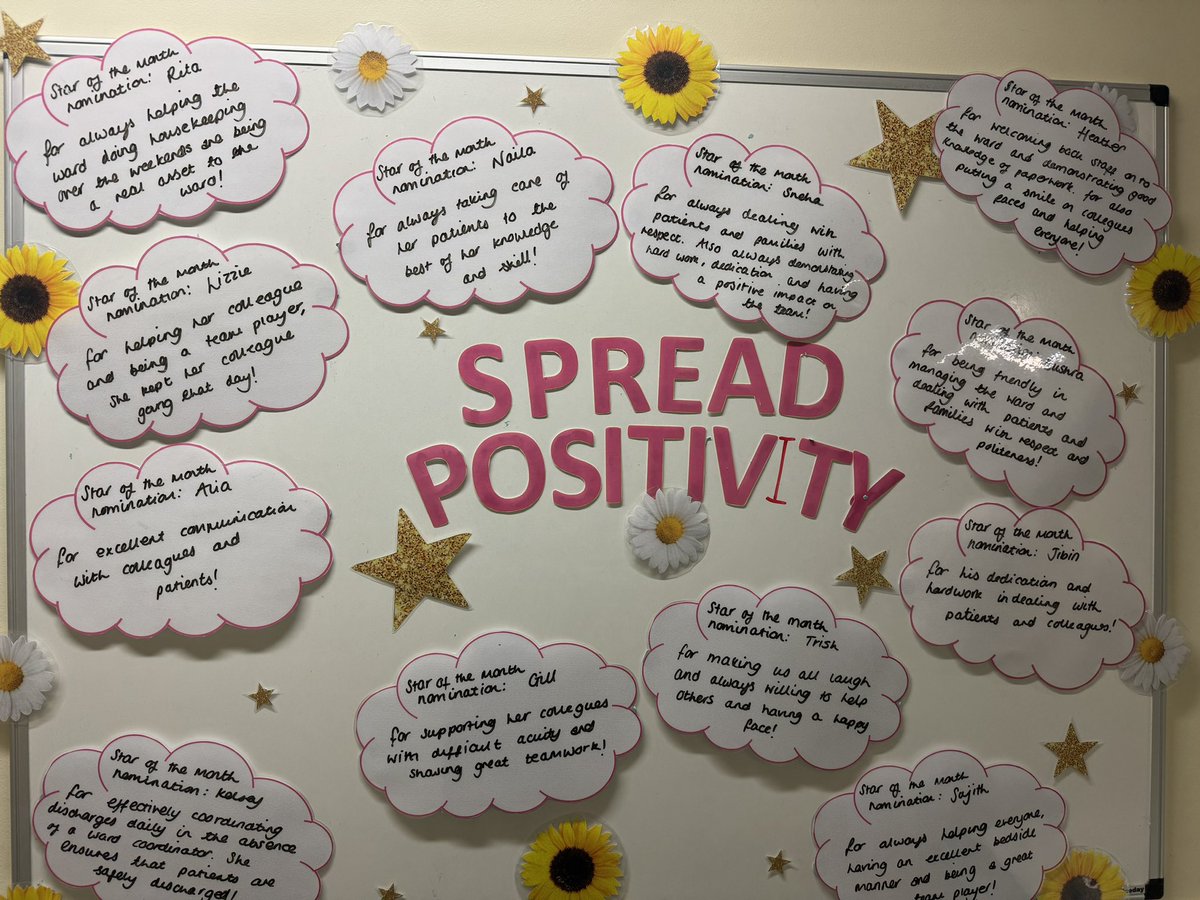 Star of the Month
nomination: Rita
for always helping the
ward doing housekeeping
over the weekends she being
a real asset to the
ward!
Star of the Month
nomination: Naila
for always taking care of
her patients to the
best of her knowledge
and skill!
Star of the Month
nomination: Sneha
for always dealing with
patients and families with
respect. Also always demonstrating
hard work, dedication and having
a positive impact on
the team!
Star of the Month
nomination: Heather
for welcoming back staff on to
the ward and demonstrating good
knowledge of paperwork. for also
putting a smile on collegues
faces and helping
everyone!
Star of the month
nomination: Lizzie
for helping her colleague
and being a team player,
she kept her colleague
going that day!
SPREAD
POSITIVITY
Star of the Month
for being friendly in
managing the ward and
dealing with patients and
families with respect and
politeness!
Star of the Month
nomination: Alia
for excellent communication
with colleagues and
patients!
Star of the Month
nomination: Jibin
for his dedication and
hardwork in dealing with
patients and colleagues!
Star of the Month
nomination: Gill
for supporting her collegues
with difficult acuity and
showing great teamwork!
Star of the month
nomination: Trish
for making us all laugh
and always willing to help
others and having a happy
face!
Star of the Month
nomination: Kelsey
for effectively coordinating
discharges daily in the absence
of a ward coordinator. She
ensures that patients are
safely discharged!
Star of the Month
nomination: Sajith
for always helping everyone,
having an excellent bedside
manner and being a great
team player!